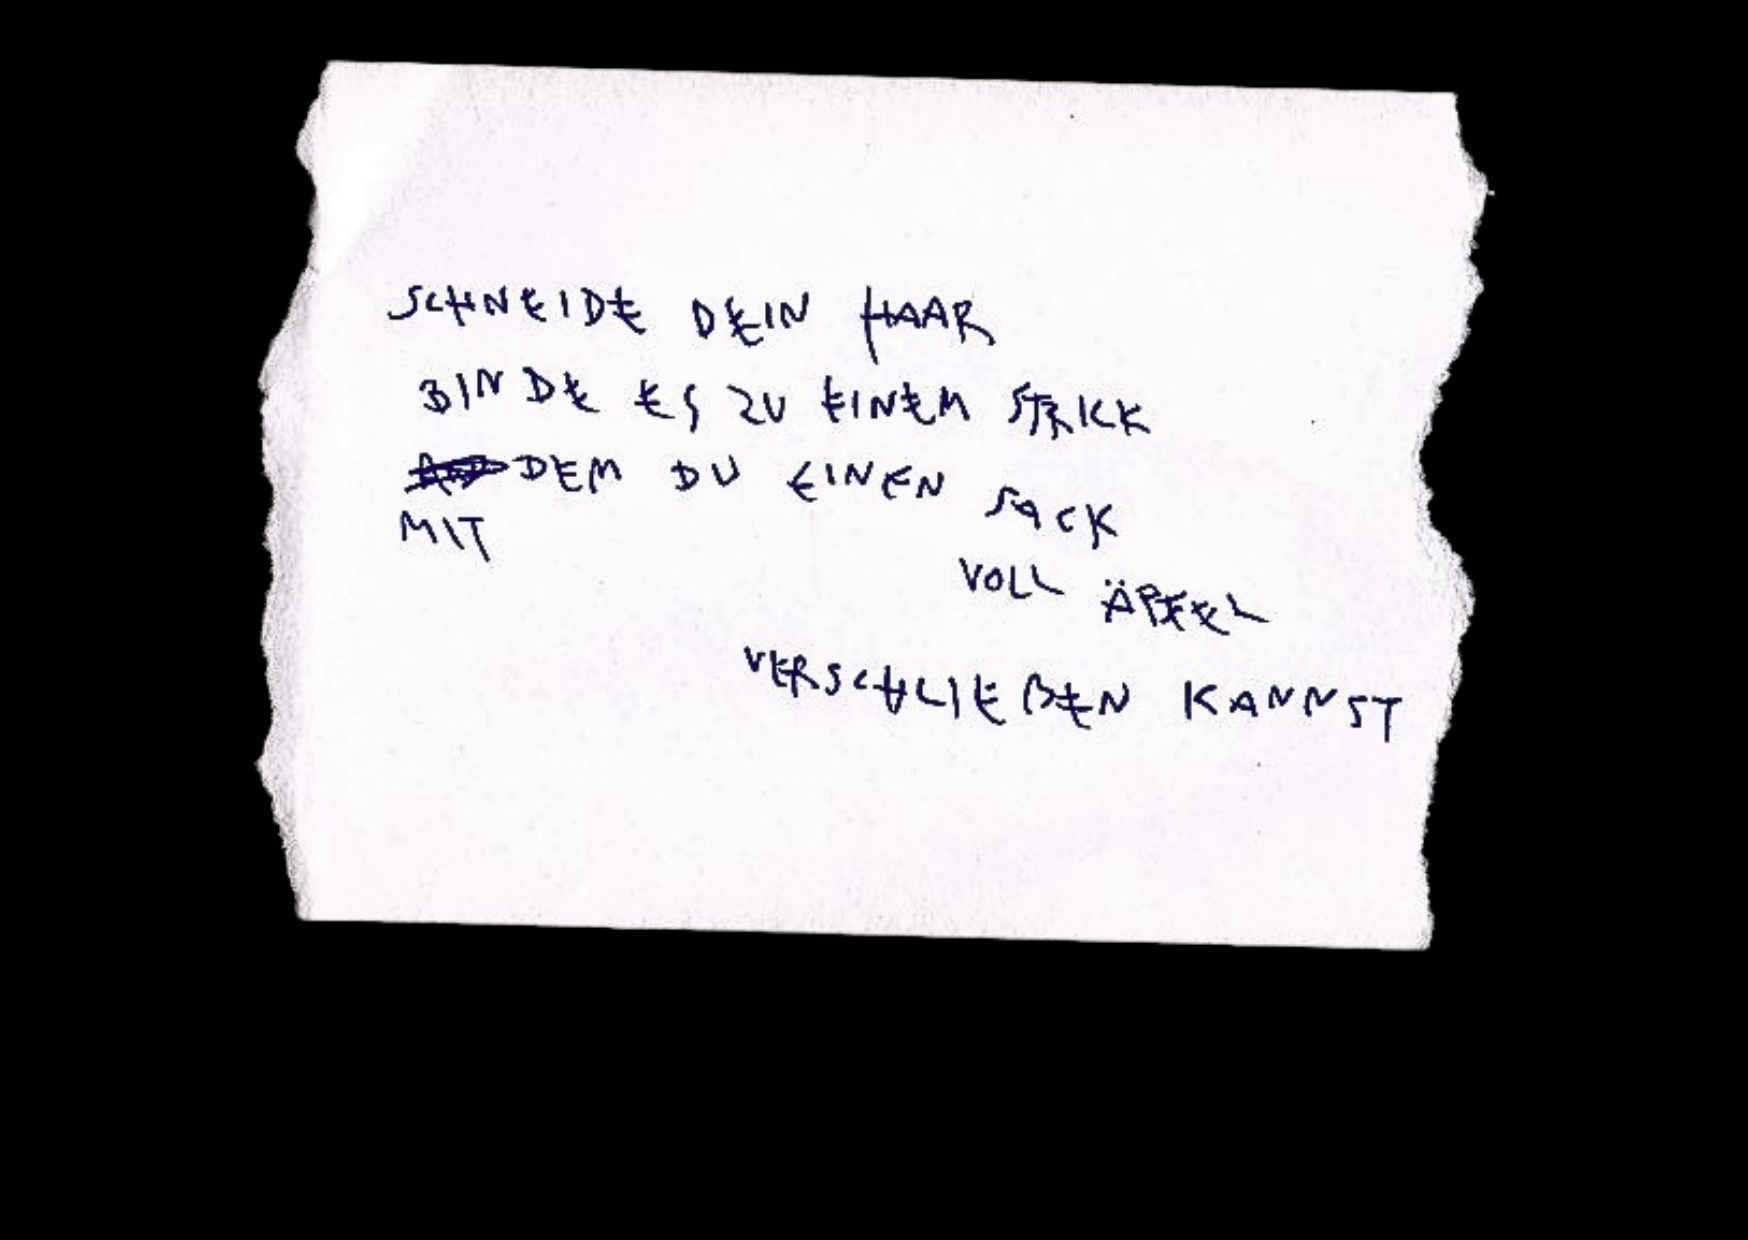 SCHNEIDE DEIN HAAR
BINDE ES ZU EINEM STRICK
DEM DU EINEN SACK
MIT
VOLL ÄPFEL
VERSCHLIEßEN KANNST